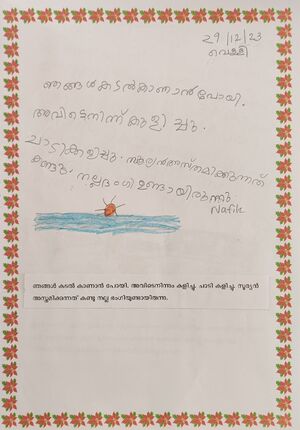 29/12/23
വെള്ളി
ഞങ്ങൾ കടൽ കാണാൻ പോയി.
അവിടെനിന്ന് കുളിച്ചു.
ചാടികളിച്ചു. സൂര്യൻ അസ്തമിക്കുന്നത്
കണ്ടു. നല്ല ഭംഗി ഉണ്ടായിരുന്നു
Nafik
ഞങ്ങൾ കടൽ കാണാൻ പോയി. അവിടെനിന്നും കുളിച്ചു. ചാടി കളിച്ചു. സൂര്യൻ
അസ്തമിക്കുന്നത് കണ്ടു നല്ല ഭംഗിയുണ്ടായിരുന്നു.